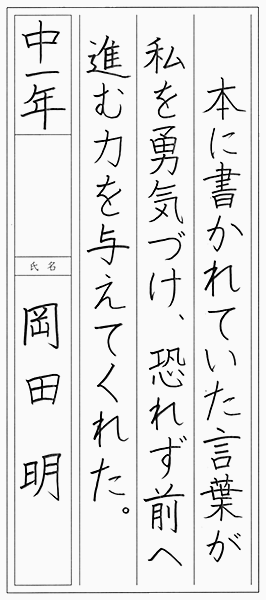 本に書かれていた言葉が
私を勇気づけ、恐れず前へ
進む力を与えてくれた。
中一年
氏名
岡田明